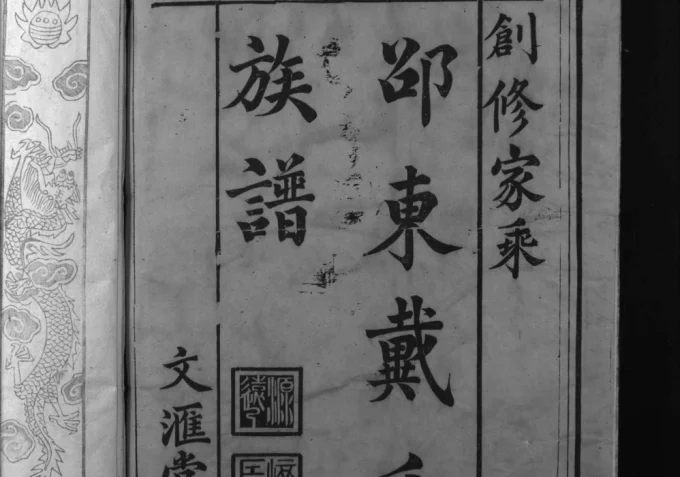 創修家乘
邵東戴
族譜
文滙堂
源遠